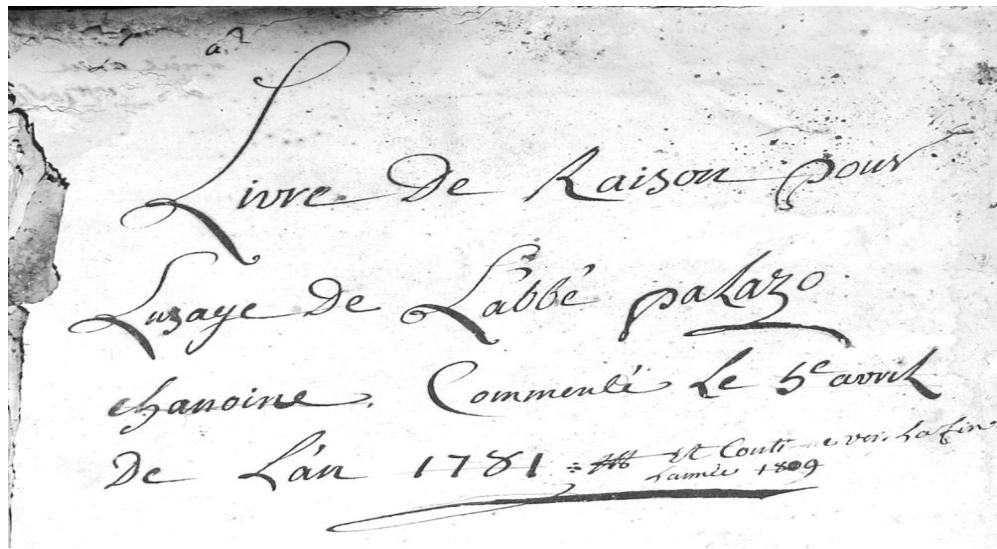 Livre De Raison pour
Luzaye De L'abbé palazo
chanoine. Commencé Le 5e avril
De L'án 1781 Et Conti e vers La fin
L'année 1809